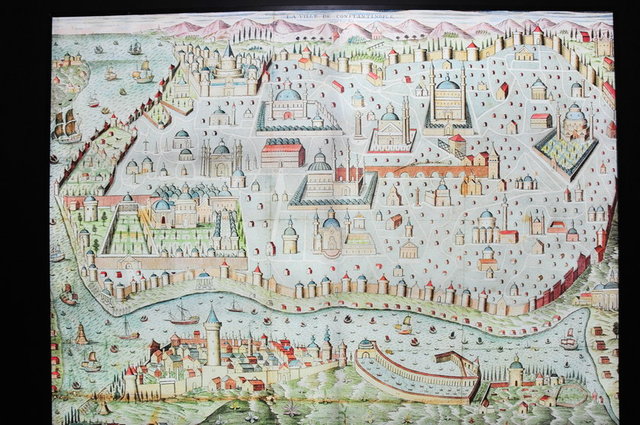 LA VILLE DE CONSTANTINOPLE